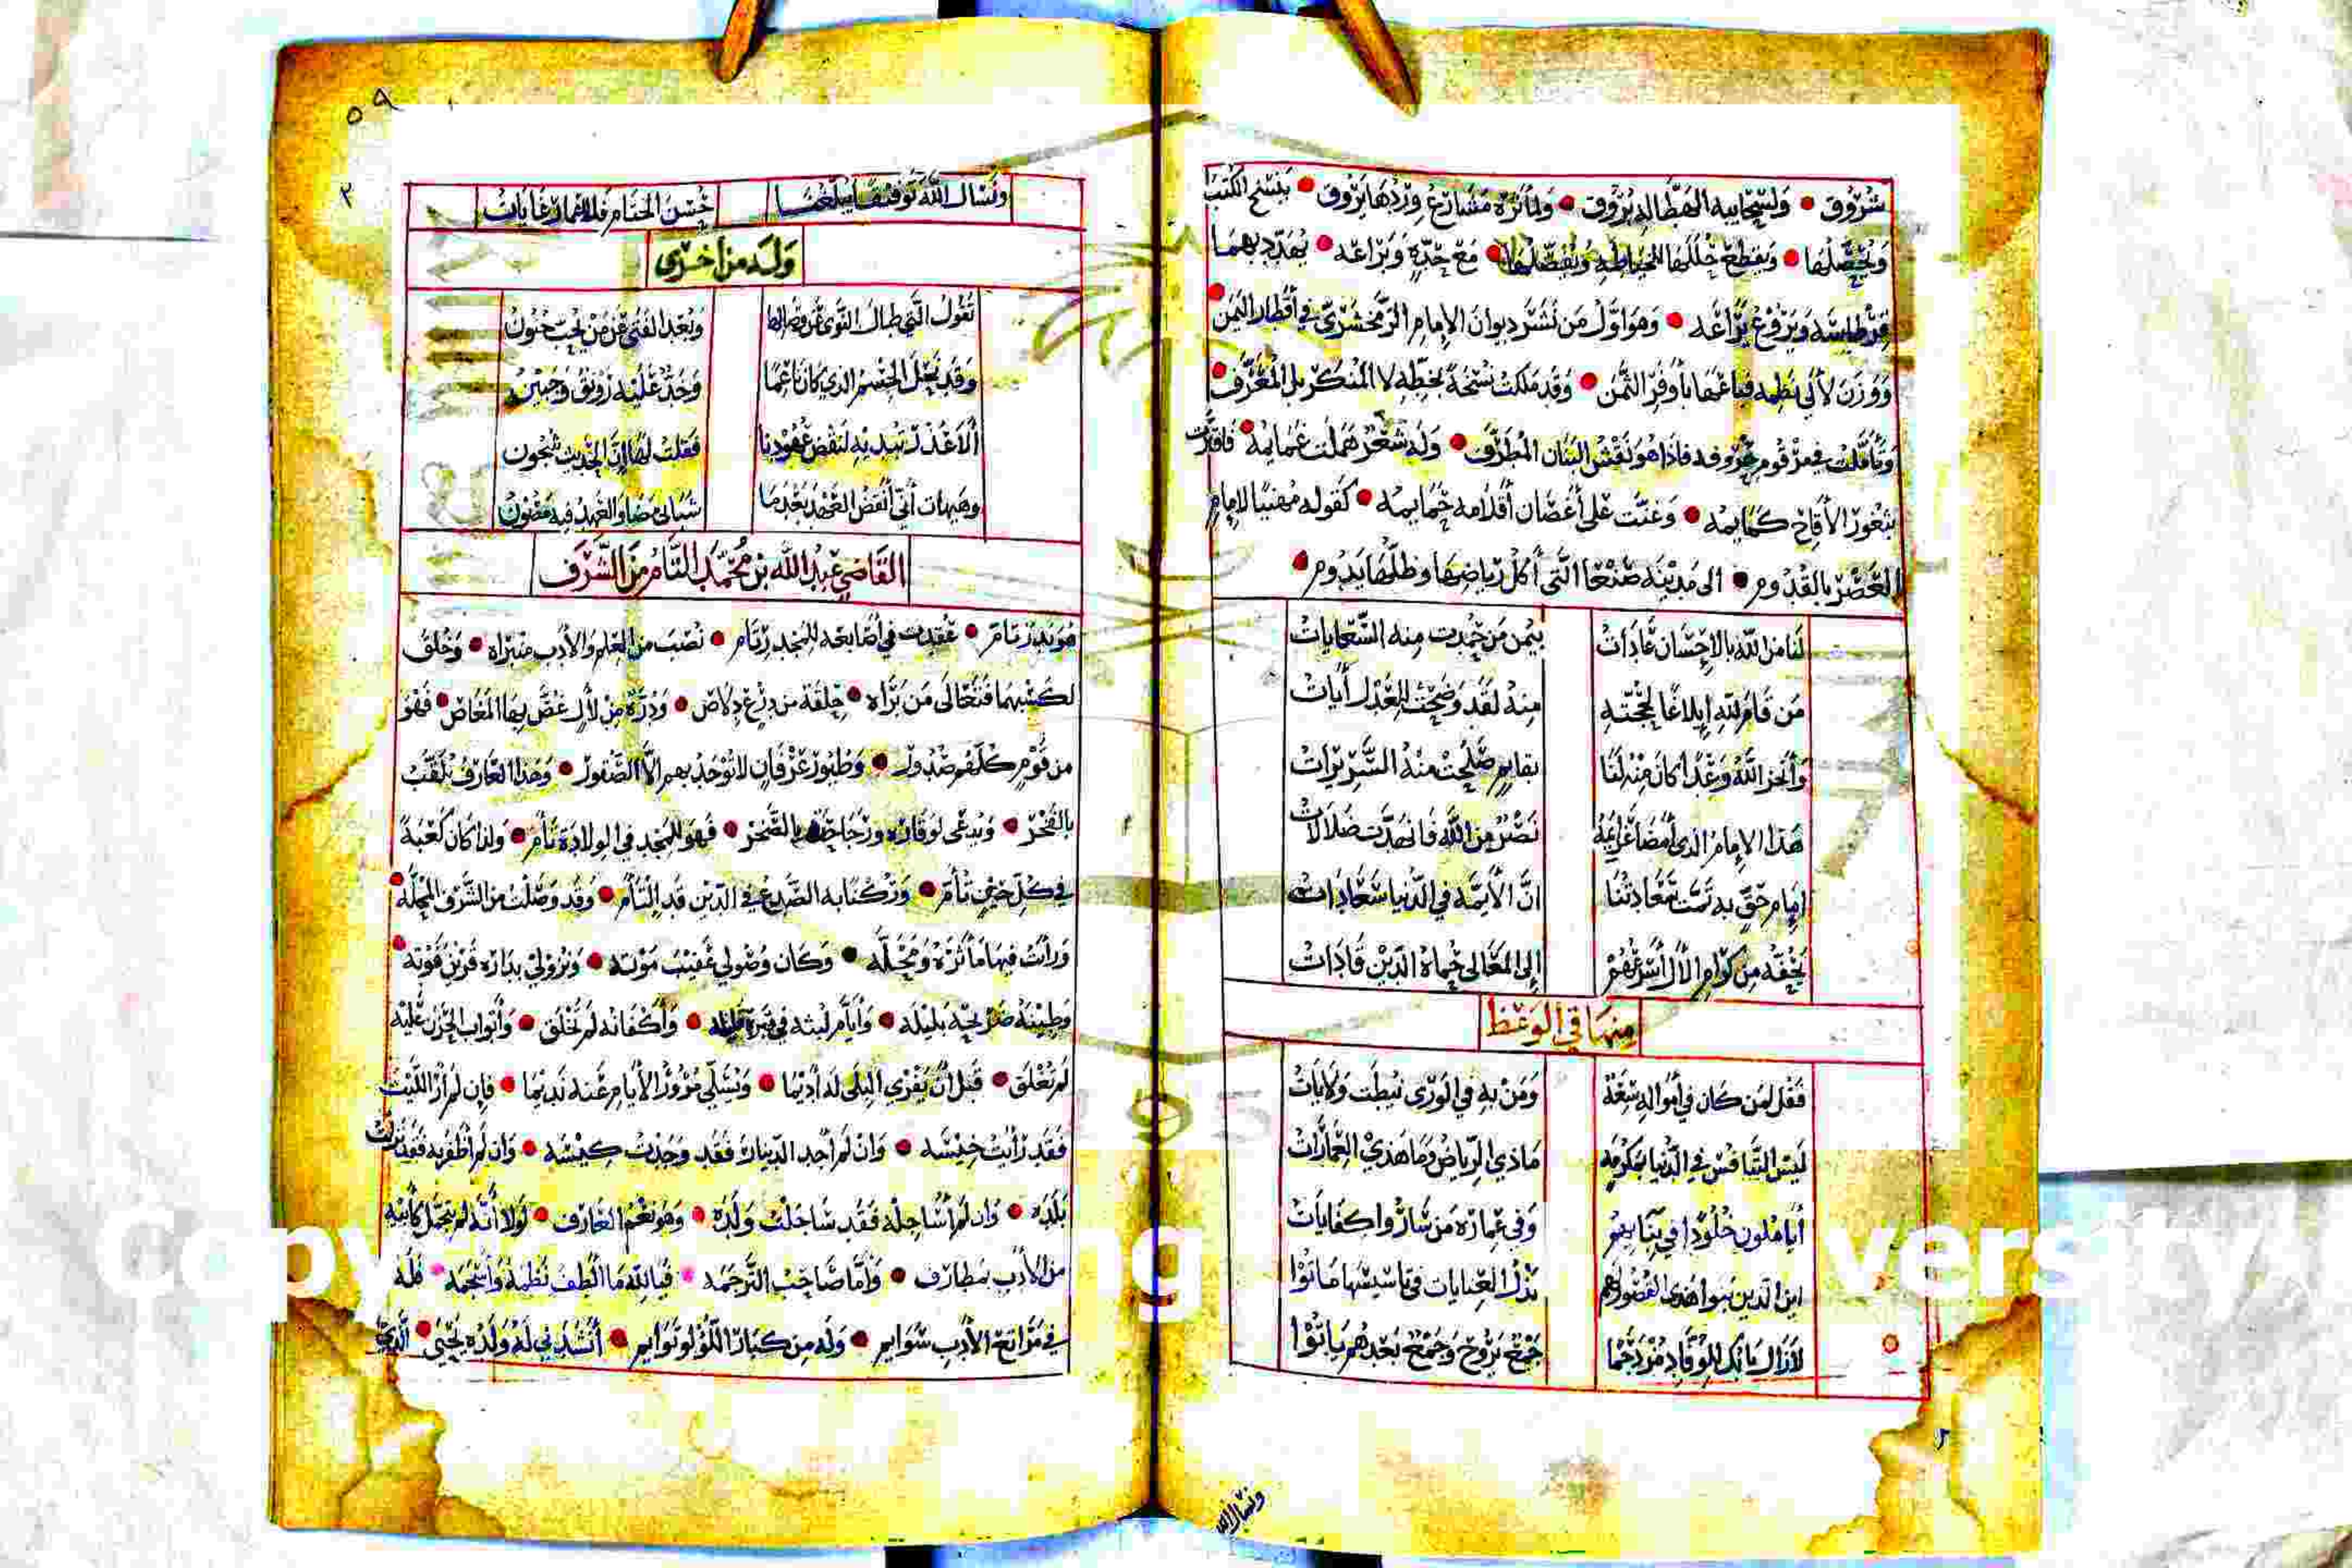 شروق • ولسحايبه الهطاله بروق • ولمأثره مشارع وردها يروق • بنسخ الكتب
ويحصلها • ويقطع حللها الخياطه ويفصلها • مع حده وبراعه • يهدد بهما
قرطاسه ويروع يراعه • وهو اول من نشر ديوان الإمام الزمخشري في أقطار اليمن •
ووزن لألي نظمه فباعها بأوفر الثمن • وقد ملكت نسخة بخطه لا المنكر بل المعرف •
وتأملت في مرقوم حروفه فاذا هو نقش البنان المطرف • وله شعر هملت غمايمه • فافترت
بثغور الأقاح كمايمه • وغنت على أغصان أقلامه حمايمه • كقوله مهنيا لامام
العصر بالقدوم • الى مدينه صنعا التي أكل رياضها وظلها يدوم •
لنا من الله بالاحسان عادات بيمن من حمدت منه السعايات
من قام لله إبلاغا لحجته منه لقد وضحت للعدل أيات
وأنجز الله وعدا كان منه لنا بقايم صلحت منه السريرات
هذا الإمام الذي أمضا عزايمه نصر من الله فانهدت ضلالات
إمام حق به تمت سعادتنا ان الأيمه في الدنيا سعادات
يحفه من كرام الأل أسرتهم إلى المعالي حماة الدين قادات
منها في الوعظ
فقل لمن كان في أمواله سعة ومن به في الورى نيطت ولايات
ليس التنافس في الدنيا بمكرمه ماذي الرياض وما هذي العمارات
أيأملون خلودا في بنايهم وفي عمارة من ساروا كفايات
اين الذين بنوا هذي القصور وهم بذل العنايات في تاسيسها ماتوا
لازال بابك للوفاد مزدحما جمع يروح وجمع بعدهم ياتوا
ونسال الله
٥٩
ونسال الله توفيقا يبلغنا حسن الختام فللاعمار غايات
وله من اخرى
تقول التي طال النوى عن وصالها وبعد الفتى عن من يحب جنون
وقد نحل الجسم الذي كان ناعما وخد عليه رونق وجبين
ألا عذر تبديه لنقض عهودنا فقلت لها إن الحديث شجون
وهيهات أني أنقض العهد بعدما شبابي مضا والعهد فيه مصون
القاضي عبد الله بن محمد التام من الشرف
هو بدر تام • عقدت في أصابعه للمجد رتام • نصب من العلم والأدب منبراه • وخلق
لكسبهما فتعالى من براه • حلقة من درع دلاص • ودرة من لأل غص بها المغاص • فهو
من قوم كلهم صدول • وطيور عرفان لا توجد بهم إلا الصقور • وهذا العارف يلقب
بالفخر • ويدعى لوقاره ورجاحته بالصخر • فهو للمجد في الولادة تأم • ولذا كان كعبة
في كل حين تأم • وركنا به الصدع في الدين قد التأم • وقد وصلت من الشرف المحله •
ورأت فيها مأثره ومحله • وكان وصولي عقيب موته • ونزولي بداره قرين فوته •
وطينة ضريحه بليله • وأيام لبثه في قبره قليله • وأكفانه لم تخلق • وأبواب الحزن عليه
لم تغلق • قبل أن يفري البلى له أديما • وتسلي مرور الأيام عنه نديما • فإن لم أر الليث
فقد رأيت خيسه • وان لم أجد الدينار فقد وجدت كيسه • وان لم أظفر به فقد نزلت
بلده • وان لم أساجله فقد ساجلت ولده • وهو نعم العارف • لولا أنه لم يتجمل كأبيه
من الأدب بمطارف • وأما صاحب الترجمه • فيا لله ما الطف نظمه وأسجمه • فله
في مراتع الأدب سوايم • وله من كبار اللؤلؤ توايم • أنشدني له ولده يحيى • الذي